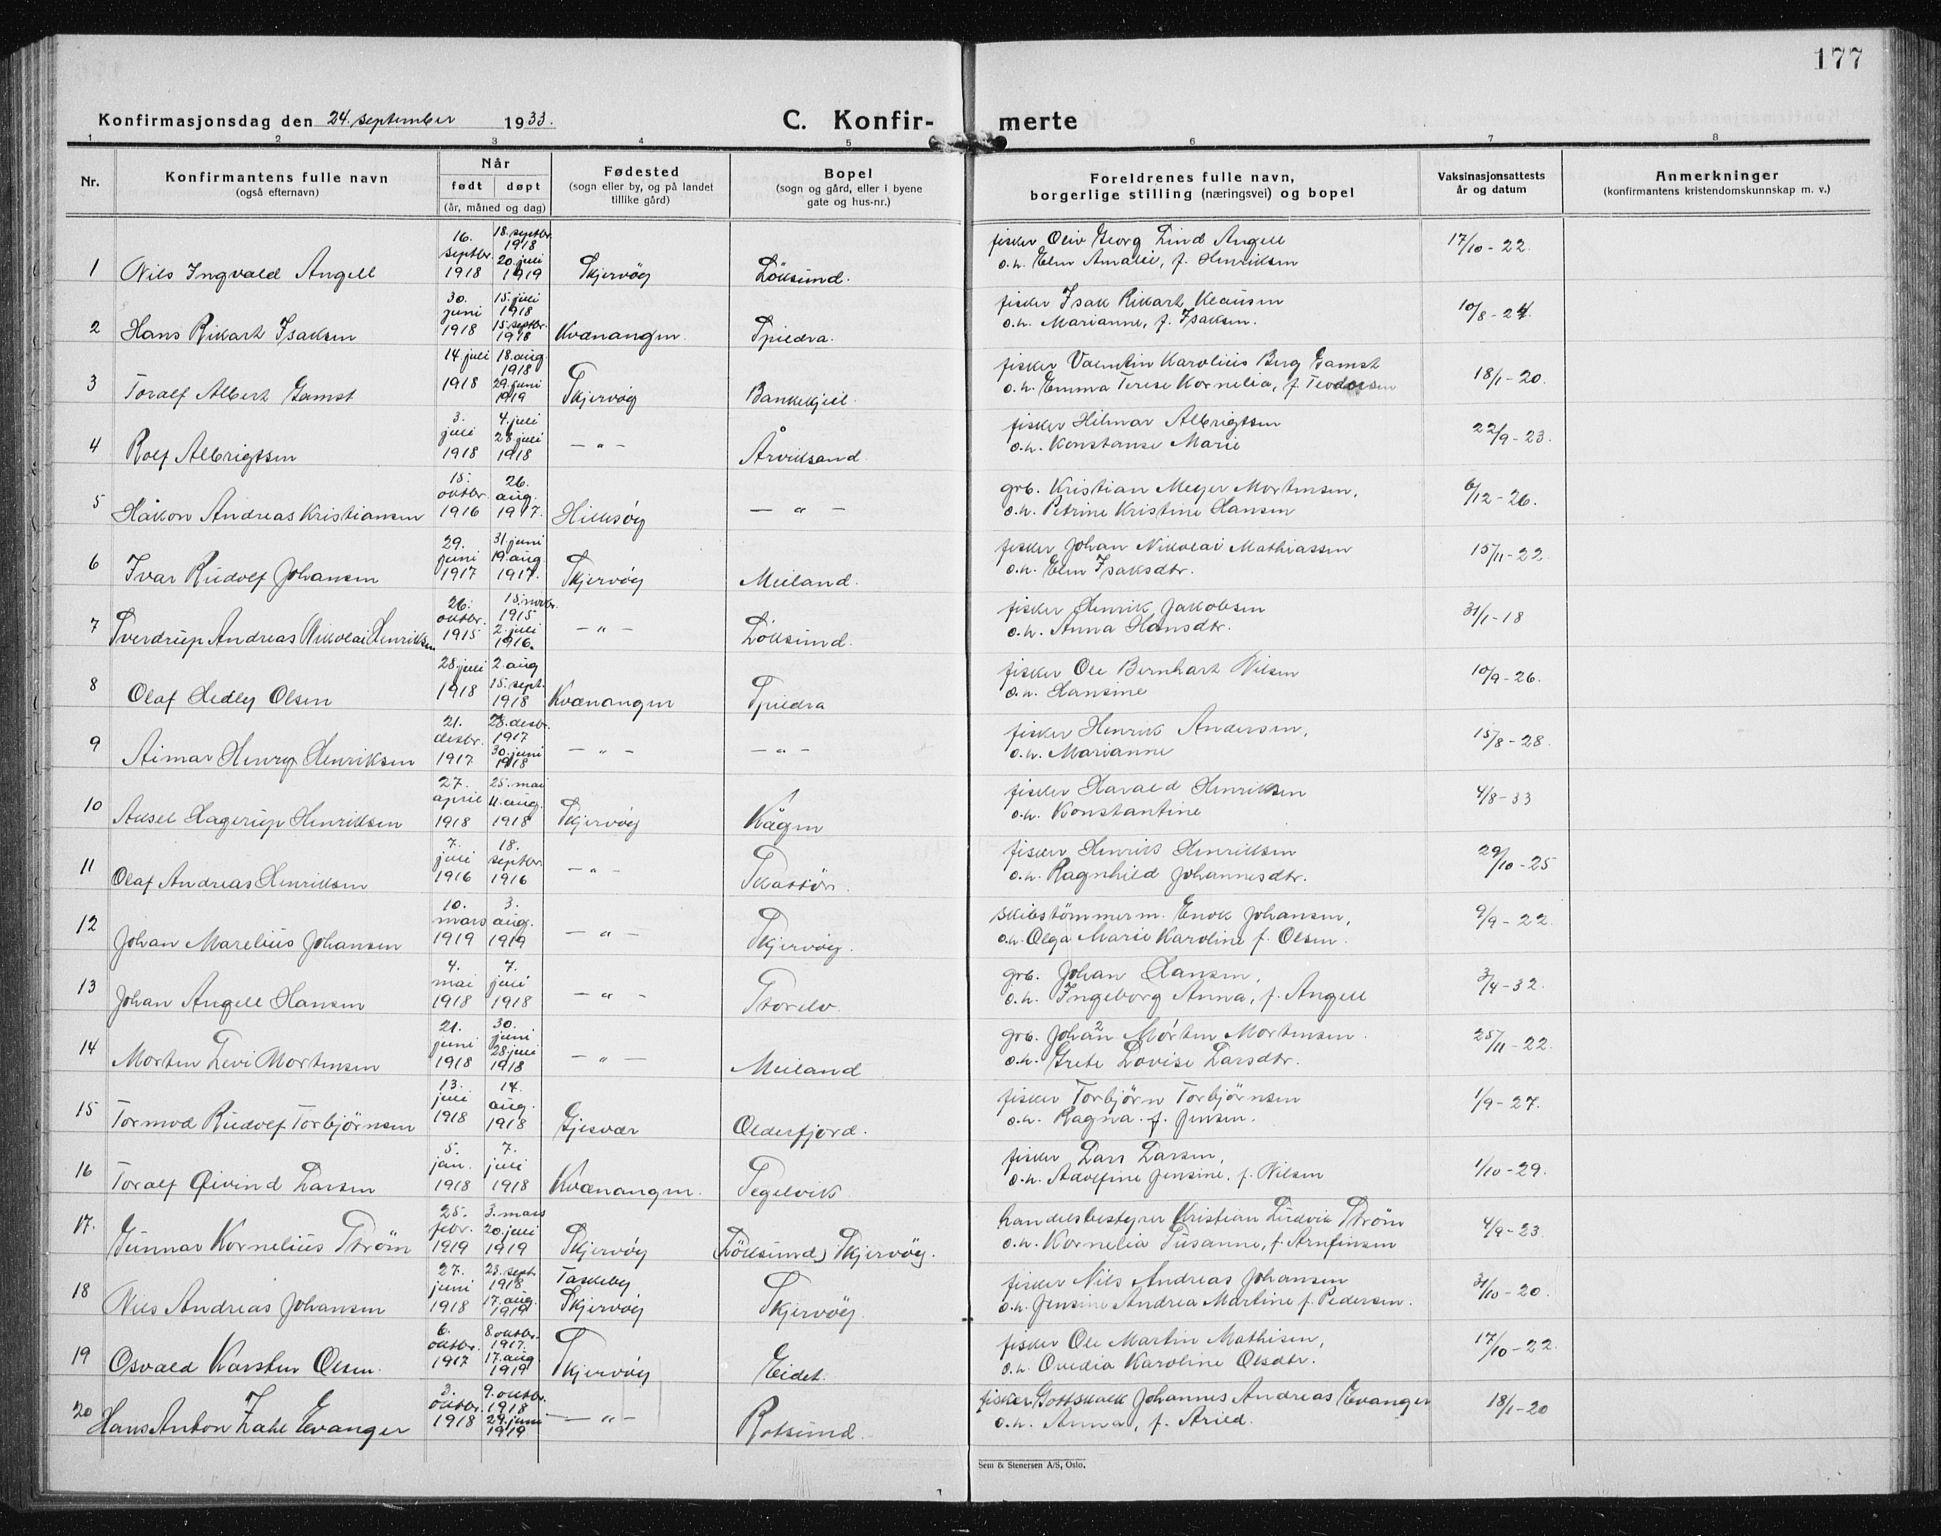 177
Konfirmasjonsdag den 24. september 1933. C. Konfir- merte
1 2 3 4 5 6 7 8
Nr. Konfirmantens fulle navn (også efternavn) Når født døpt (år, måned og dag) Fødested (sogn eller by, og på landet tillike gård) Bopel (sogn og gård, eller i byene gate og hus-nr.) Foreldrenes fulle navn, borgerlige stilling (næringsvei) og bopel Vaksinasjonsattests år og datum Anmerkninger (konfirmantens kristendomskunnskap m. v.)
1 Nils Ingvald Angell 16. septbr. 1918 18. septbr. 1918 20. juli 1919 Skjervøy Löksund. fisker Oliv Georg Lind Angell o.h. Elen Amalie, f. Henriksen 17/10-22.
2 Hans Rikart Isaksen 30. juni 1918 15. juli 1918 15. septbr. 1918 Kvænangen. Spildra. fisker Isak Rikart Klausen o.h. Marianne, f. Isaksen. 10/8-24.
3 Toralf Albert Gamst 14 juli 1918 18. aug. 1918 29. juni 1919 Skjervøy Bankekjeil. fisker Valentin Karolius Berg Gamst o.h. Emma Terese Kornelia, f. Teodorsen 18/1-20.
4 Rolf Albrigtsen 3. juli 1918 4. juli 28. juli 1918 -"- Årviksand. fisker Hilmar Albrigtsen o.h. Konstanse Marie 22/9-23.
5 Håkon Andreas Kristiansen 15. oktbr. 1916 26. aug. 1917. Hillesøy -"- grb. Kristian Meyer Mortensen, o.h. Petrine Kristine Hansen 6/12-26.
6 Ivar Rudolf Johansen 29. juni 1917 31. juni 19. aug. 1917. Skjervøy Meiland. fisker Johan Nikolai Mathiassen o.h. Elen Isaksdtr. 15/11-22.
7 Sverdrup Andreas Nikolai Henriksen 26. oktbr. 1915 15. novbr. 1915 2. juli 1916. -"- Löksund. fisker Henrik Jakobsen o.h. Anna Hansdtr. 31/1-18
8 Olaf Hedley Olsen 28. juli 1918 2. aug 15. sept. 1918 Kvænangen Spildra fisker Ole Bernhart Nilsen o.h. Hansine 10/9-26.
9 Aimar Henry Henriksen 21. desbr. 1917 28. desbr. 1917 30. juni 1918 -"- -"- fisker Henrik Andersen, o.h. Marianne 15/8-28.
10 Aksel Hagerup Henriksen 27. april 1918 25. mai 11. aug. 1918 Skjervøy Kågen fisker Harald Henriksen o.h. Konstantine 4/8-33
11 Olaf Andreas Henriksen 7. juli 1916 18. septbr. 1916 -"- Skattör. fisker Henrik Henriksen o.h. Ragnhild Johannesdtr. 29/10-25
12 Johan Marelius Johansen 10. mars 1919 3. aug. 1919 -"- Skjervøy. skibstømmerm. Enok Johansen, o.h. Olga Marie Karoline f. Olsen. 9/9-22.
13 Johan Angell Hansen 4. mai 1918 7. juli 1918 -"- Storelv. grb. Johan Hansen, o.h. Ingeborg Anna, f. Angell 3/4-32.
14 Morten Levi Mortensen 21. juni 1918 30. juni 28. juli 1918 -"- Meiland grb. Johan Morten Mortensen. o.h. Grete Lovise Larsdtr. 25/11-22.
15 Tormod Rudolf Torbjørnsen 13. juli 1918 14. aug. 1918 Gjesvær Olderfjord. fisker Torbjørn Torbjørnsen o.h. Ragna. f. Jensen. 1/9-27.
16 Toralf Øivind Larsen 5. jan. 1918 7. juli 1918 Kvænangen. Segelvik. fisker Lars Larsen, o.h. Adolfine Jensine, f. Nilsen 1/10-29.
17. Gunnar Kornelius Strøm 25. febr. 1919 3. mars 20. juli 1919 Skjervøy (Löksund) Skjervøy. handelsbestyrer Kristian Ludvik Strøm o.h. Kornelia Susanne, f. Arnfinsen 4/9-23.
18 Nils Andreas Johansen 27. juni 1918 23. sept. 1918. 17. aug. 1919 Taskeby Skjervøy Skjervøy. fisker Nils Andreas Johansen o.h. Jensine Andrea Martine f. Pedersen. 31/10-20.
19 Osvald Karsten Olsen. 6. oktbr. 1917 8. oktbr. 1917. 17. aug. 1919 Skjervøy Eidet. fisker Ole Martin Mathisen, o.h. Ovedia Karoline Olsdtr. 17/10-22.
20 Hans Anton Zahl Evanger 3. oktbr. 1918 9. oktbr. 1918 29. juni 1919 -"- Rotsund. fisker Gottskalk Johannes Andreas Evanger o.h. Anna, f. Arild. 18/1-20
Sem & Stenersen A/S, Oslo.